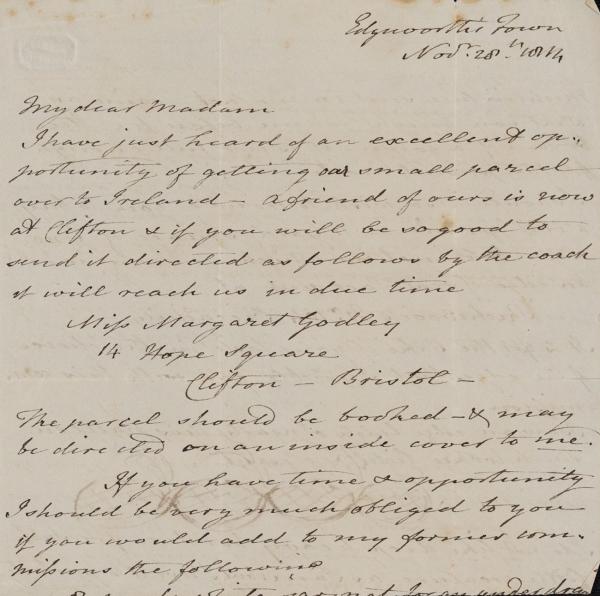 Edgeworth's Town
Novr. 28th. 1844
My dear Madam
I have just heard of an excellent op-
portunity of getting our small parcel
over to Ireland – a friend of ours is now
at Clifton & if you will be so good to
send it directed as follows by the coach
it will reach us in due time
Miss Margaret Godley
14 Hope Square
Clifton – Bristol –
The parcel should be booked – & may
be directed on an inside cover to me.
If you have time & opportunity
I should be very much obliged to you
if you would add to my former com-
missions the following